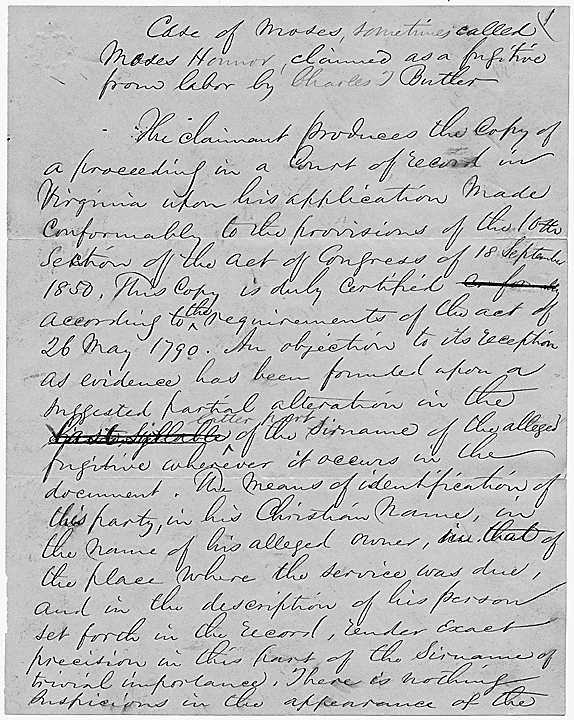 1
Case of Moses, sometimes called
Moses Honnor, claimed as a fugitive
from labor by Charles T Butler
The claimant produces the Copy of
a proceeding in a Court of record in
Virginia upon his application made
conformably to the provisions of the 10th
Section of the act of Congress of 18 September
1850. This Copy is duly certified
according to the requirements of the act of
26 May 1790. An objection to its reception
as evidence has been founded upon a
suggested partial alteration in the
last syllable latter part of the Sirname of the alleged
fugitive wherever it occurs in the
document. The means of identification of
this party, in his Christian Name, in
the name of his alleged owner, in that of
the place where the service was due,
and in the description of his person
set forth in the record, render exact
precision in this part of the Sirname of
trivial importance. There is nothing
suspicious in the appearance of the